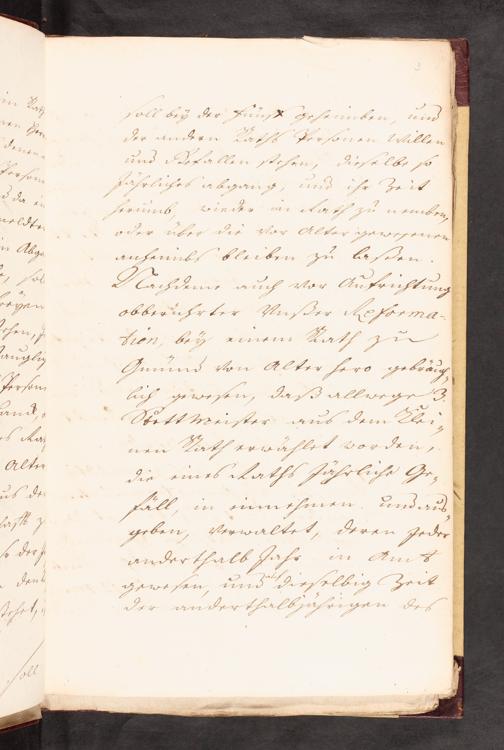 3
soll bey der Fünff geheimben, und
der andern Raths Personen Willen
und Gefallen stehen, dieselbe so
Jährliches abgang, und ihr Zeit
herumb, wieder in Rath zu nemben,
oder über die vor Alter gewesenen
anheimbs bleiben zu laßen.
Nachdeme auch vor Aufrichtung
obberührter Unßer Reforma-
tion, bey einem Rath zu
Gmünd von Alter hero gebräuch-
lich gewesen, daß allwege 3.
Stettmeister aus dem Klei-
nen Rath erwählet worden,
die eines Raths Jährliche Ge-
fäll, in einnehmen und aus-
geben, verwaltet, deren Jeder
anderthalb Jahr in Amt
gewesen, und dieselbig Zeit
der anderthalbjährigen des
soll